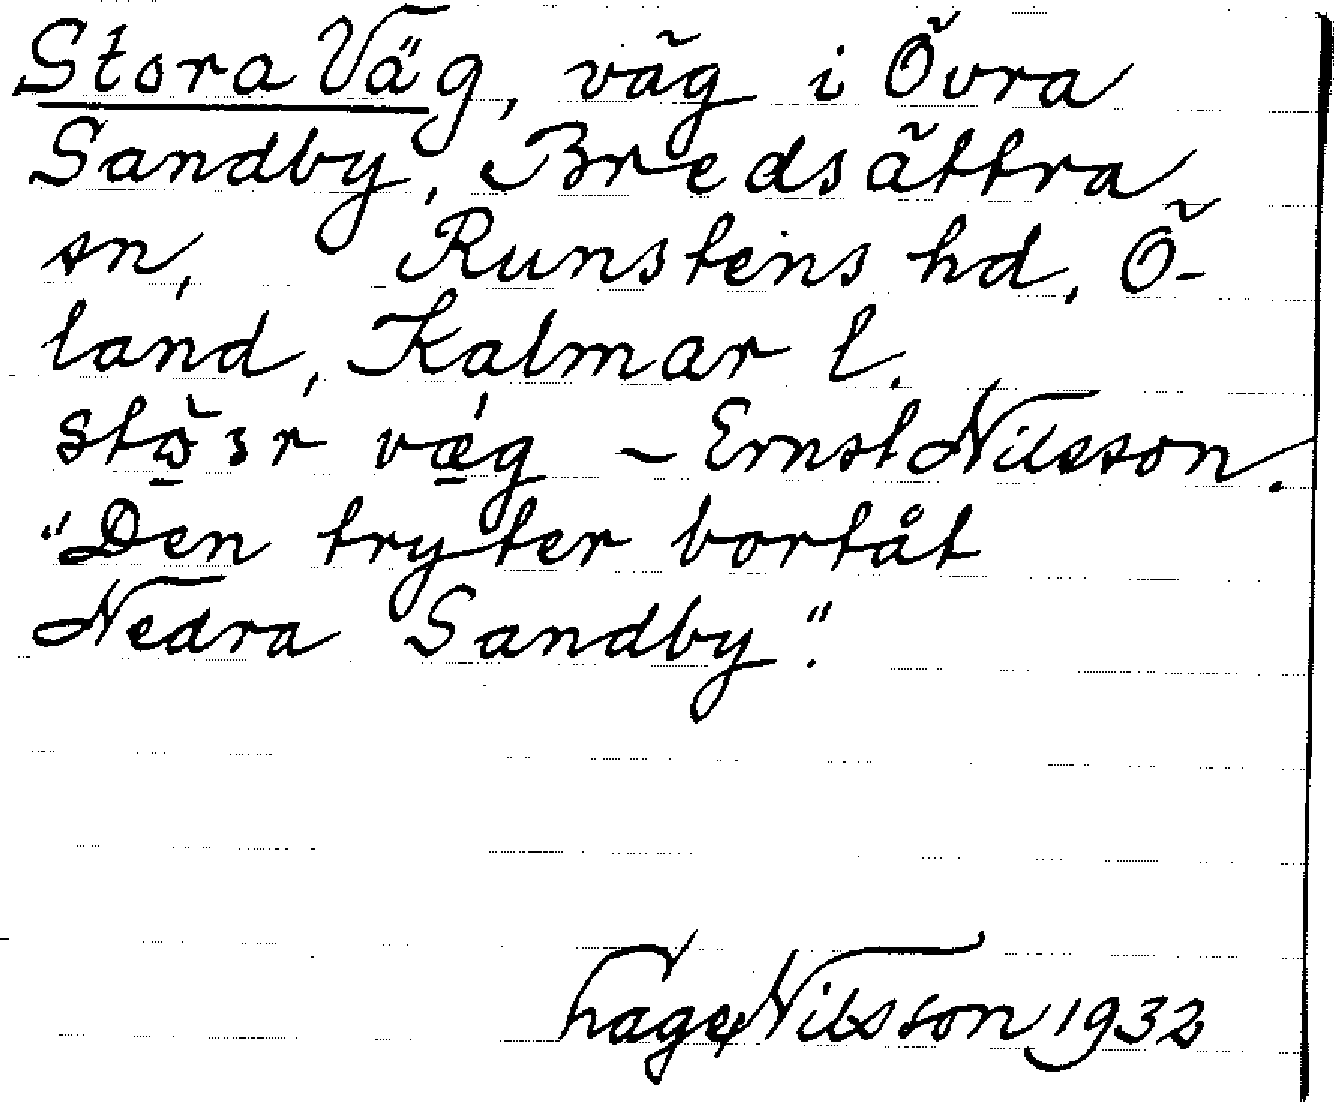 Stora Väg, väg i Övra
Sandby, Bredsättra
sn, Runstens hd, Ö-
land, Kalmar l.
væg – Ernst Nilsson.
"Den tryter bortåt
Nedra Sandby".
Hage Nilsson 1932